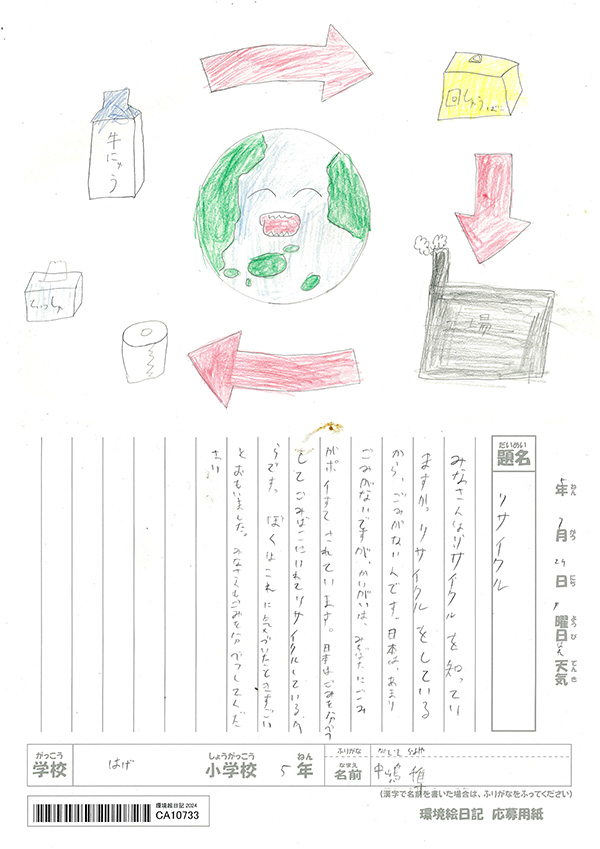 牛にゅう
回しゅうばこ
てぃっしゅ
工場
題名
だいめい
リサイクル
年
ねん
7
月
がつ
29
日
にち
曜日
ようび
天気
てんき
みなさんはリサイクルを知ってい
ますか。リサイクルをしている
から、ごみがないんです。日本は、あまり
ごみがないですが、かいがいは、みちばたにごみ
がポイすてされています。日本はごみを分べつ
してごみばこにいれてリサイクルしているか
らです。ぼくはこれに気づいたときすごい
とおもいました。みなさんもごみを分べつしてくだ
さい
がっこう
学校
はげ
しょうがっこう
小学校
5
ねん
年
ふりがな
なまえ
名前
中嶋
(漢字で名前を書いた場合は、ふりがなをふってください)
環境絵日記 2024
CA10733
環境絵日記 応募用紙